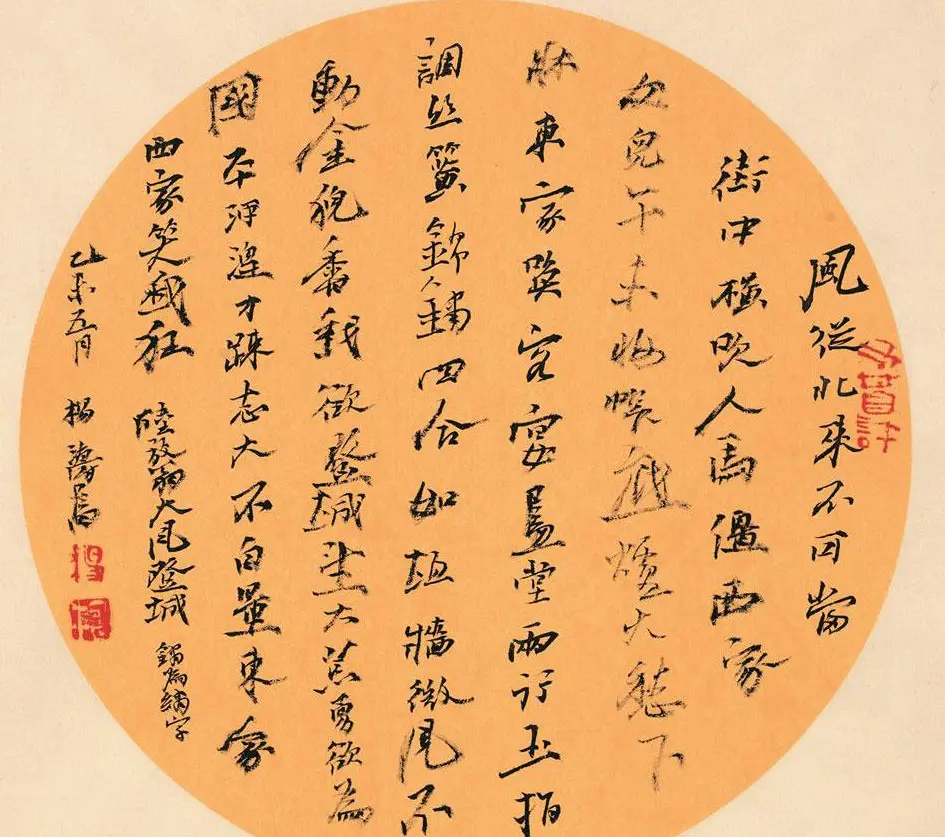 風從北來不可當
街中橫吹人馬僵西家
女兒午未妝帳底爐火愁下
牀東家喚客宴畫堂兩行玉指
調絲簧錦鏽四合如垣牆微風不
動金猊香我欲登城望大荒勇欲為
國平河湟才疎志大不自量東家
西家笑我狂 陸放翁大風登城 鏽為繡字
乙未五月 楊濤書